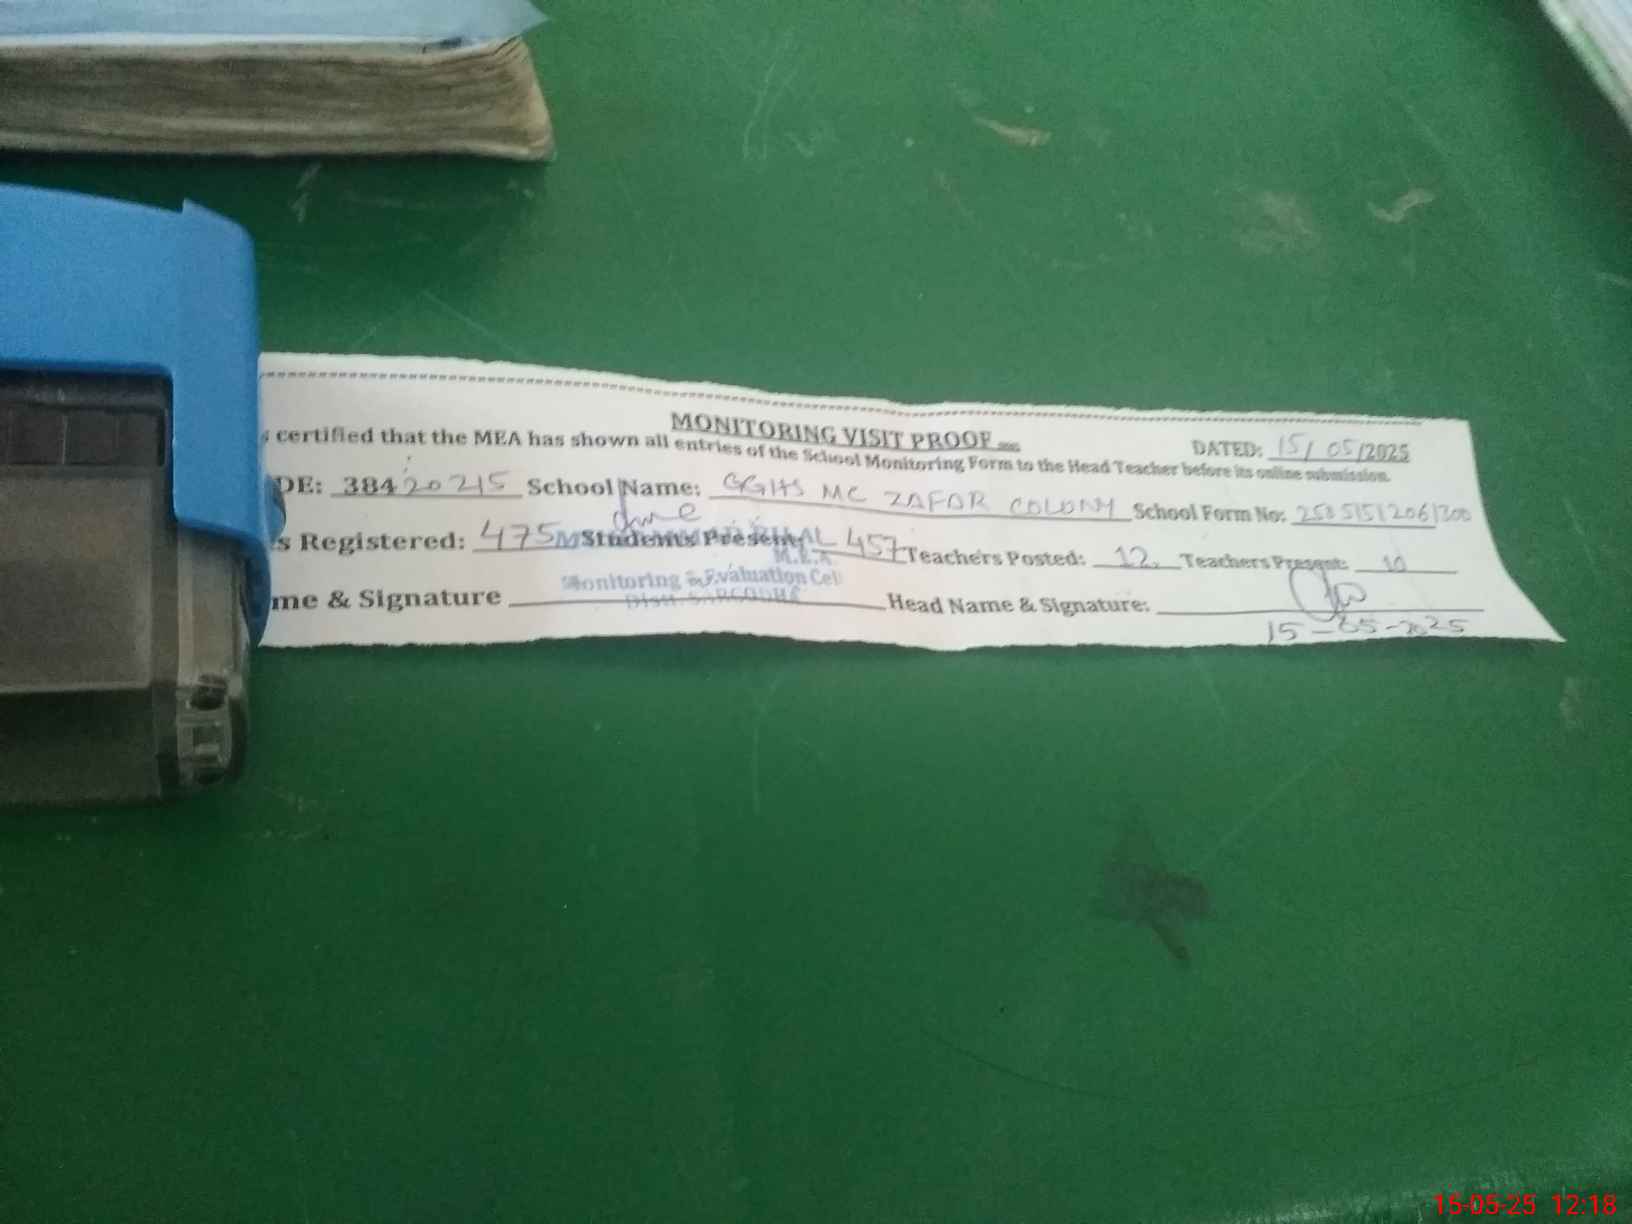 MONITORING VISIT PROOF
DATED: 15/05/2025
s certified that the MEA has shown all entries of the School Monitoring Form to the Head Teacher before its online submission.
DE: 38420215 School Name: GGHS MC ZAFAR COLONY School Form No:
s Registered: 475 Students Present: 457 Teachers Posted: 12. Teachers Present: 10
M.E.A
Monitoring & Evaluation Cell
Distt. SARGODHA
me & Signature Head Name & Signature:
15-05-2025
15-05-25 12:18